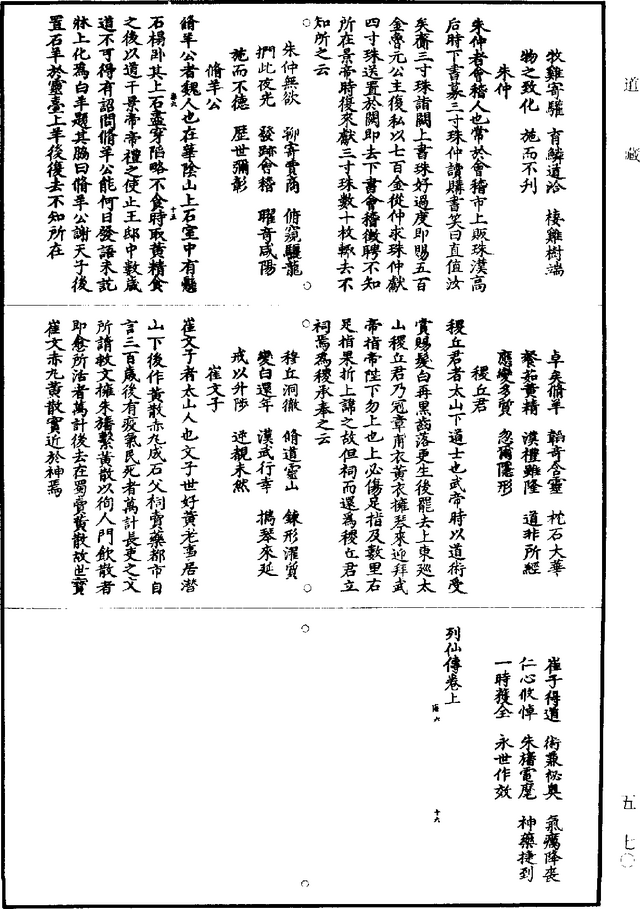 牧雞寄驩　育鱗道洽　棲雞樹端
物之致化　施而不刋
朱仲
朱仲者會稽人也常於會稽市上販珠漢高
后時下書募三寸珠仲讀購書笑曰直值汝
矣齎三寸珠詣闕上書珠好過度即賜五百
金魯元公主復私以七百金從仲求珠仲獻
四寸珠送置於闕即去下書會稽徵聘不知
所在景帝時復來獻三寸珠數十枚輒去不
知所之云
朱仲無欲　聊寄賈商　俯窺驪龍
捫此夜光　發跡會稽　曜奇咸陽
施而不德　歷世彌彰
脩羊公
脩羊公者魏人也在華陰山上石室中有懸
石榻卧其上石盡穿陷略不食時取黃精食
之後以道干景帝帝禮之使止王邸中數歲
道不可得有詔問脩羊公能何日發語未訖
牀上化為白羊題其脇曰脩羊公謝天子後
置石羊於靈臺上羊後復去不知所在
卓矣脩羊　韜奇含靈　枕石大華
餐茹黃精　漢禮雖隆　道非所經
應變多質　忽爾隱形
稷丘君
稷丘君者太山下道士也武帝時以道術受
賞賜髮白再黑齒落更生後罷去上東巡太
山稷丘君乃冠章甫衣黃衣擁琴來迎拜武
帝指帝陛下勿上也上必傷足指及數里右
足指果折上諱之故但祠而還為稷丘君立
祠焉為稷承奉之云
稷丘洞徹　脩道靈山　鍊形濯質
變白還年　漢武行幸　攜琴來延
戒以升陟　逆覩未然
崔文子
崔文子者太山人也文子世好黃老事居潛
山下後作黃散赤丸成石父祠賣藥都市自
言三百歲後有疫氣民死者萬計長吏之文
所請救文擁朱旛繫黃散以徇人門飲散者
即愈所活者萬計後去在蜀賣黃散故世寶
崔文赤丸黃散實近於神焉
崔子得道　術兼祕奧　氣癘降喪
仁心攸悼　朱旛電麾　神藥捷到
一時獲全　永世作效
列仙傳卷上
海六　十五
海六　十六
道藏
五　七〇